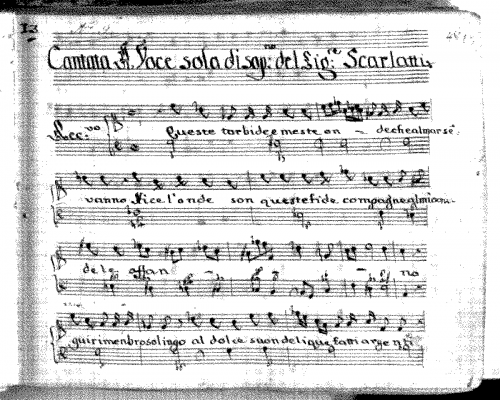 13
Cantata A. Voce sola di sop:no del Sig:re Scarlatti
Rec:vo
Queste torbide e meste on - de che al mar se
vanno Nice l'onde son queste fide compagne al mio cru-
dele affan - - no
qui rimembro solingo al dolce suon de liquefatti argenti